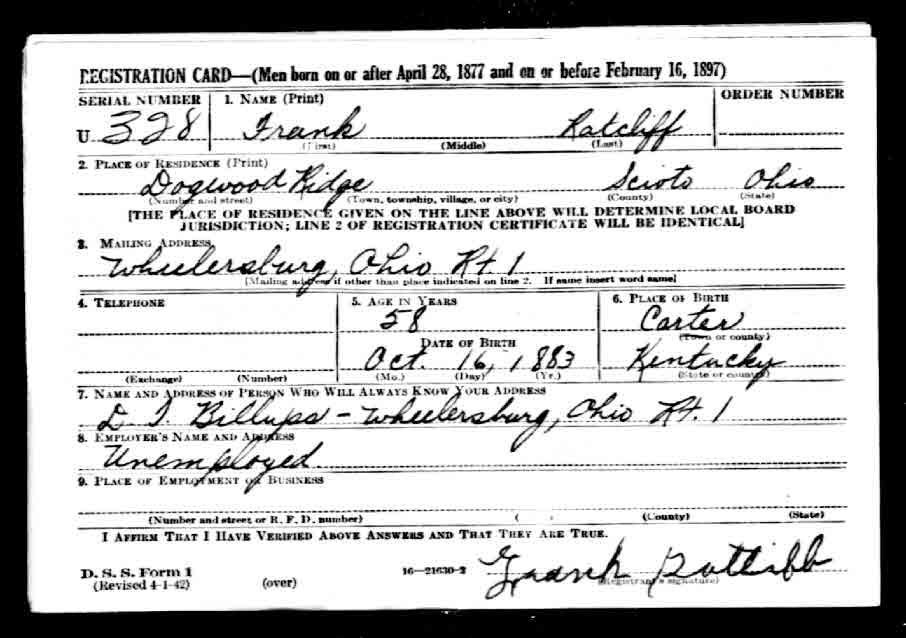 REGISTRATION CARD—(Men born on or after April 28, 1877 and on or before February 16, 1897)
SERIAL NUMBER 1. NAME (Print) ORDER NUMBER
U 328 Frank Ratcliff
(First) (Middle) (Last)
2. PLACE OF RESIDENCE (Print)
Dogwood Ridge Scioto Ohio
(Number and street) (Town, township, village, or city) (County) (State)
[THE PLACE OF RESIDENCE GIVEN ON THE LINE ABOVE WILL DETERMINE LOCAL BOARD
JURISDICTION; LINE 2 OF REGISTRATION CERTIFICATE WILL BE IDENTICAL]
3. MAILING ADDRESS
Wheelersburg, Ohio Rt. 1
[Mailing address if other than place indicated on line 2. If same insert word same]
4. TELEPHONE 5. AGE IN YEARS 6. PLACE OF BIRTH
58 Carter
(Town or county)
DATE OF BIRTH
Oct. 16, 1883 Kentucky
(Exchange) (Number) (Mo.) (Day) (Yr.) (State or country)
7. NAME AND ADDRESS OF PERSON WHO WILL ALWAYS KNOW YOUR ADDRESS
D. T. Billups - Wheelersburg, Ohio Rt. 1
8. EMPLOYER'S NAME AND ADDRESS
Unemployed
9. PLACE OF EMPLOYMENT OR BUSINESS
(Number and street or R. F. D. number) (County) (State)
I AFFIRM THAT I HAVE VERIFIED ABOVE ANSWERS AND THAT THEY ARE TRUE.
D. S. S. Form 1
(Revised 4-1-42) (over) 16—21630-2 Frank
(Registrant's signature)